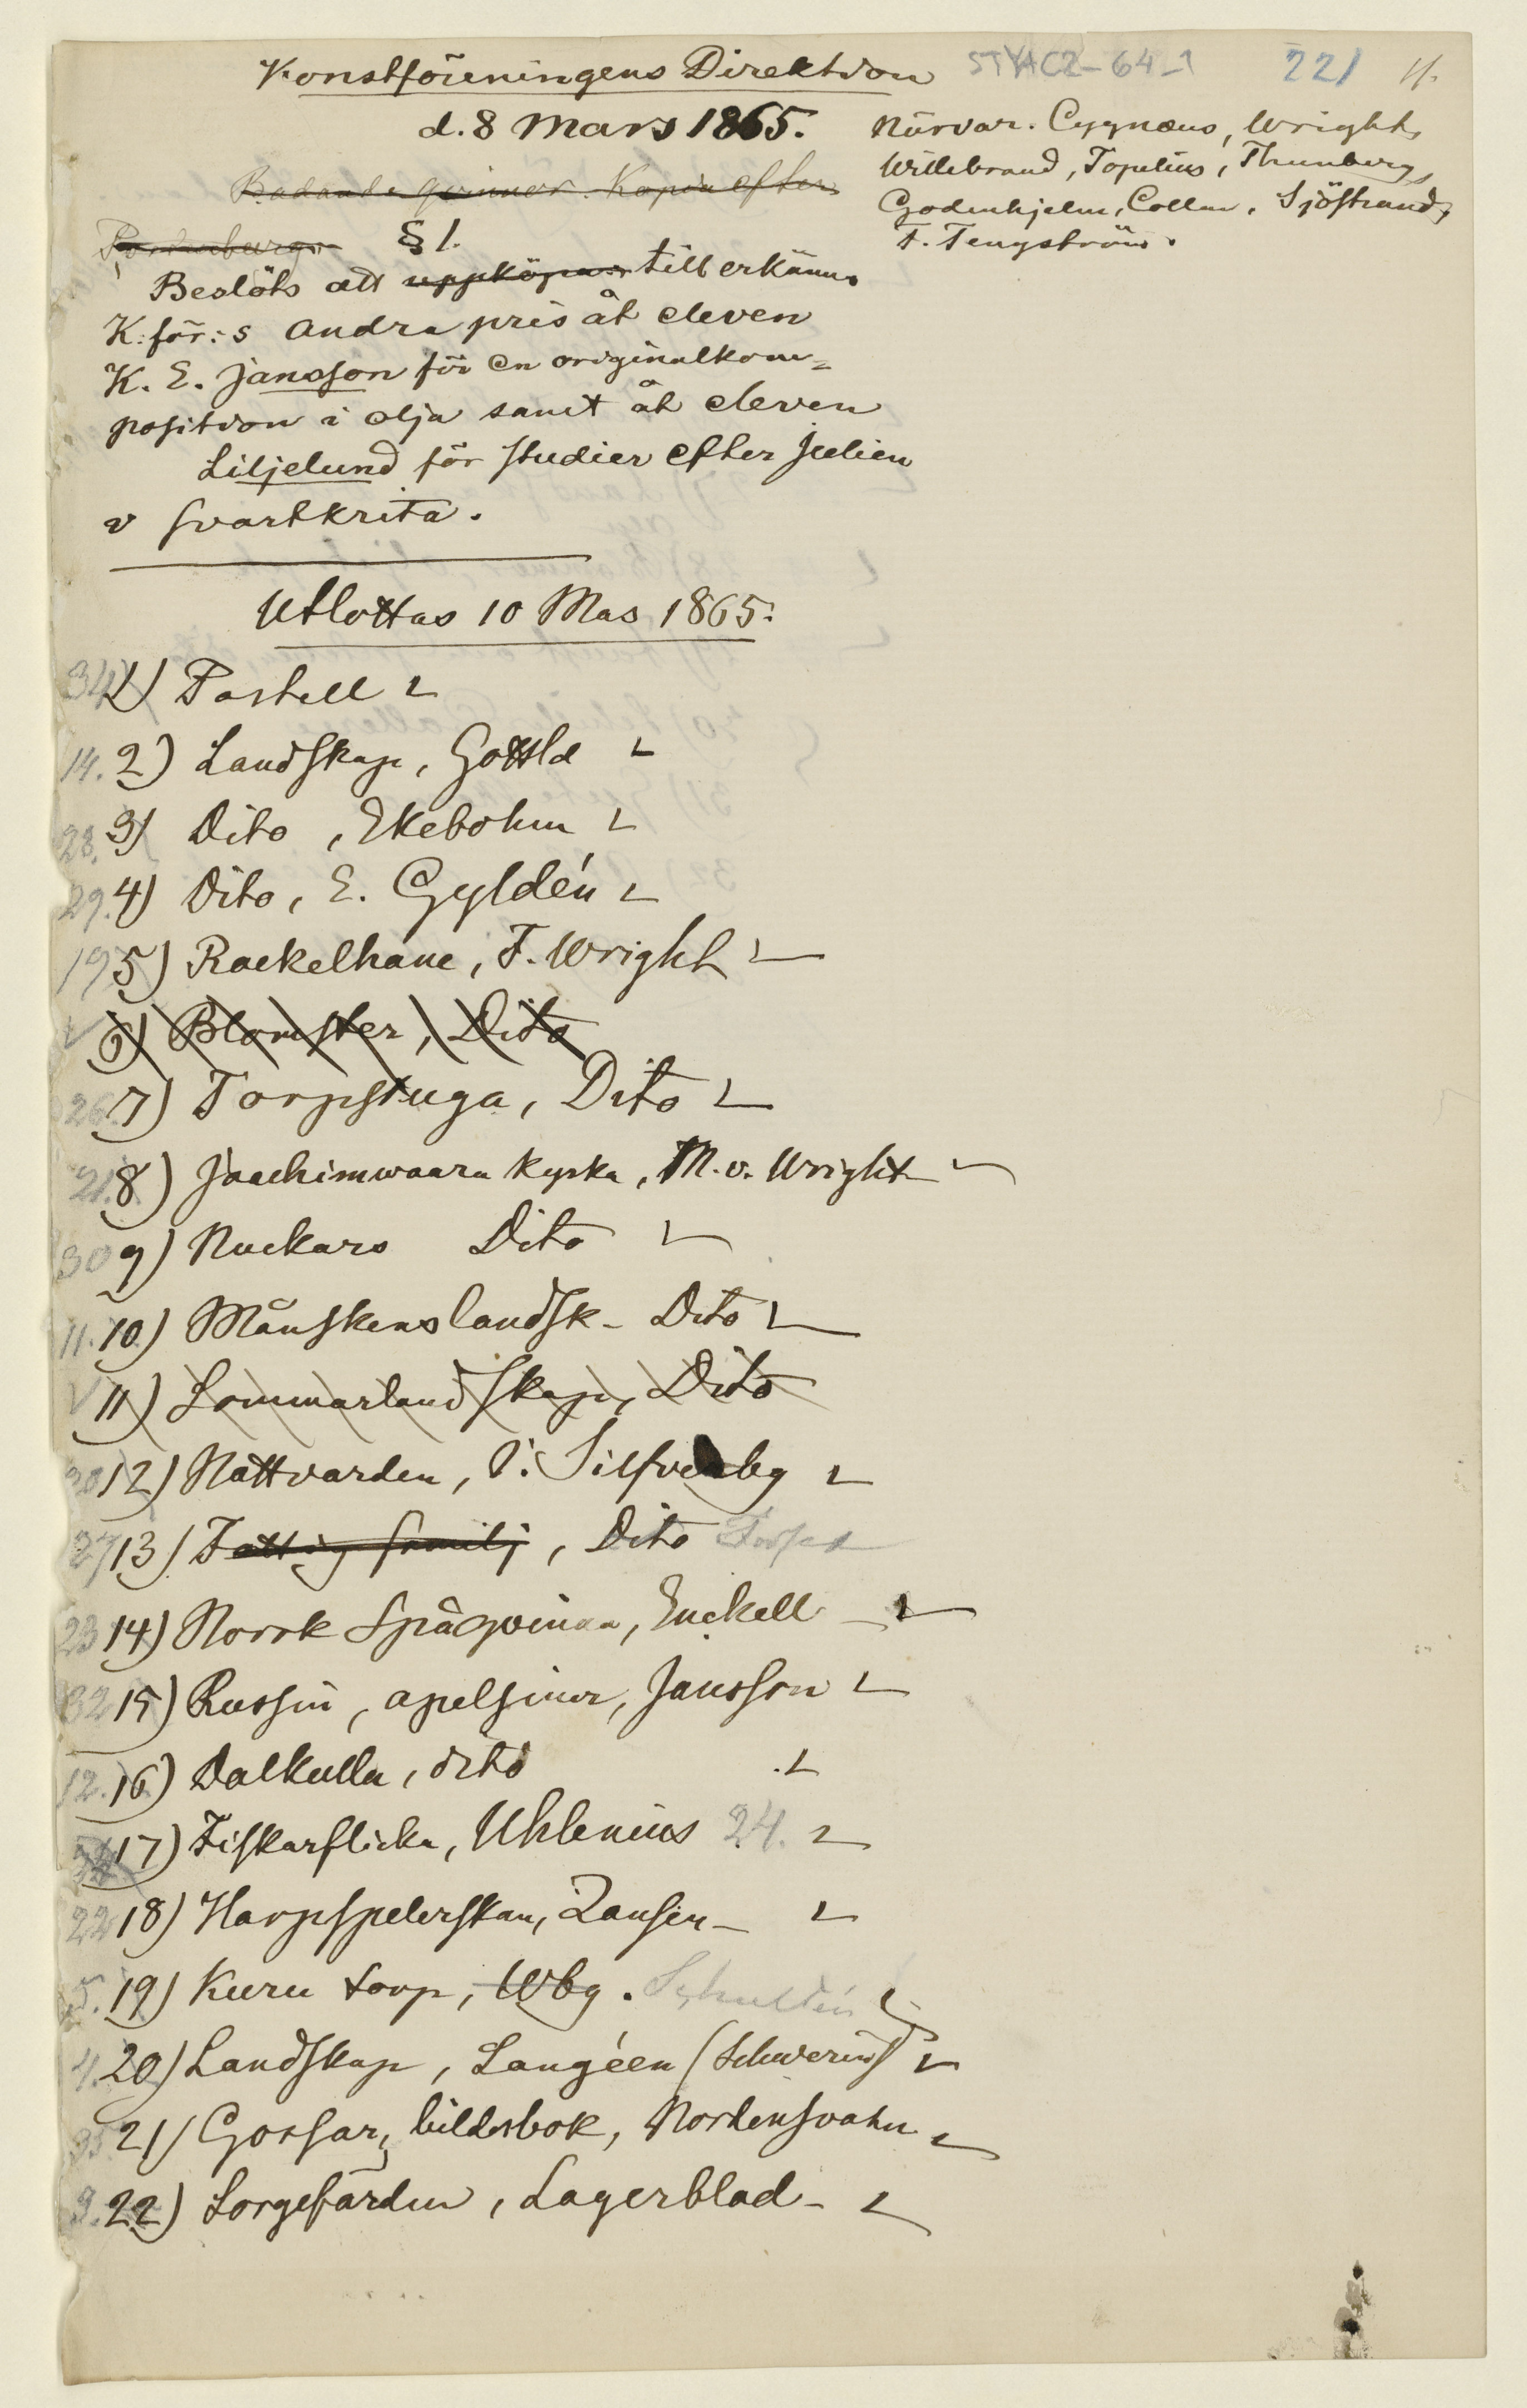 Konstföreningens Direktion
STYAC2-64-1 221 11.
d. 8 Mars 1865.
Närvar. Cygnæus, Wright,
Willebrand, Topelius, Thunberg,
Godenhjelm, Collan, Sjöstrand,
F. Tengström.
Badande qvinnor. Kopia efter
§ 1.
Beslöts att uppköpa tillerkänna
K:för:s andra pris åt eleven
K. E. Jansson för en originalkom=
position i olja samt åt eleven
Liljelund för studier efter Julien
i svartkrita.
Utlottas 10 Mas 1865.
34 1) Pastell
14. 2) Landskap, Gottld
28. 3) Dito, Ekebohm
29. 4) Dito, E. Gyldén
19 5) Rackelhane, F. Wright
6) Blomster, Dito
26. 7) Torpstuga, Dito
21. 8) Joachimwaara kyrka, M. v. Wright
30 9) Nuckars Dito
11. 10) Månskenslandsk- Dito
11) Sommarlandskap, Dito
12) Nattvarden, Silfverbg
27 13) Fattig familj, Dito
23 14) Norsk Spåqvinna, Enckell
32 15) Russin, apelsiner, Jansson
12. 16) Dalkulla, dito
17) Fiskarflicka, Uhlenius 24.
22 18) Harpspelerskan, Zansen-
5. 19) Kuru torp, Wbg. Schultén
4. 20) Landskap, Langéen (Schwerin)
35 21) Gossar, bilderbok, Nortensvahn
9. 22) Sorgefärden, Lagerblad-